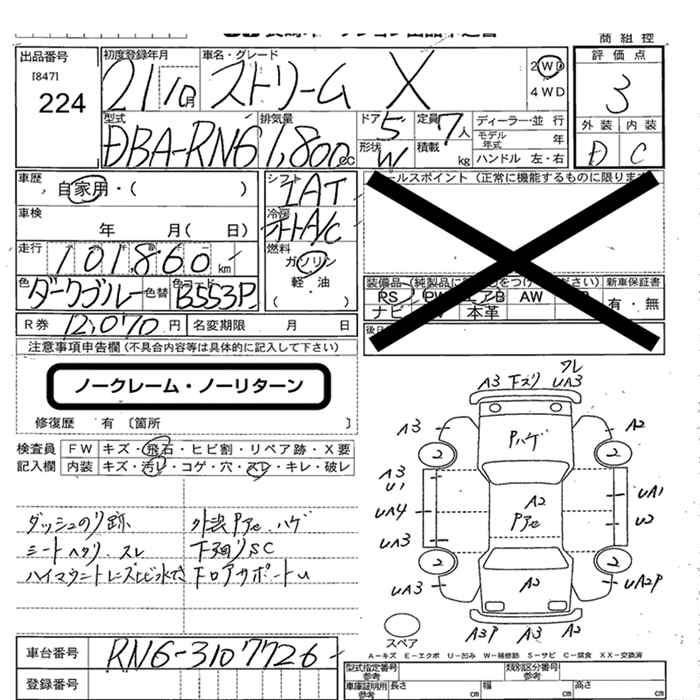 商組控
出品番号
[847]
224
初度登録年月
21 10月
車名・グレード
ストリーム X
2WD
4WD
評価点
3
外装 内装
D C
型式
DBA-RN6
排気量
1,800cc
ドア
5
形状
W
定員
7人
積載
kg
ディーラー・並行
モデル年式 年
ハンドル 左・右
車歴
自家用・( )
車検
年 月( 日)
走行
101,860 km
色
ダークブルー
色替
色コード
B553P
シフト
IAT
冷房
オートA/C
燃料
ガソリン
軽・油
( )
ールスポイント (正常に機能するものに限ります
装備品 (純製品に
をつけ
ください)
新車保証書
PS PW エアB AW
ナビ 本革
有・無
R券 12,070 円
名変期限 月 日
注意事項申告欄 (不具合内容等は具体的に記入して下さい)
ノークレーム・ノーリターン
修復歴 有 〔箇所 〕
検査員
記入欄
FW キズ・飛石・ヒビ割・リペア跡・X要
内装 キズ・汚レ・コゲ・穴・スレ・キレ・破レ
ダッシュのり跡
外装Pアセ、ハゲ
シートヘタリ、スレ
下廻りSC
ハイマウント
下ロアサポートU
A3 下ズリ
フレ
UA3
A3
A2
Pハゲ
2 2
A3
U1
UA1
A2
UA4
Pアセ
U2
UA3
2 2
UA3
A2
UA2P
スペア
A3P A3 A2
A－キズ E－エクボ U－凹み W－補修跡 S－サビ C－腐食 XX－交換済
車台番号
RN6-3107726
登録番号
型式指定番号
参考
類別区分番号
参考
車庫証明用
参考
長さ cm 幅 cm 高さ cm